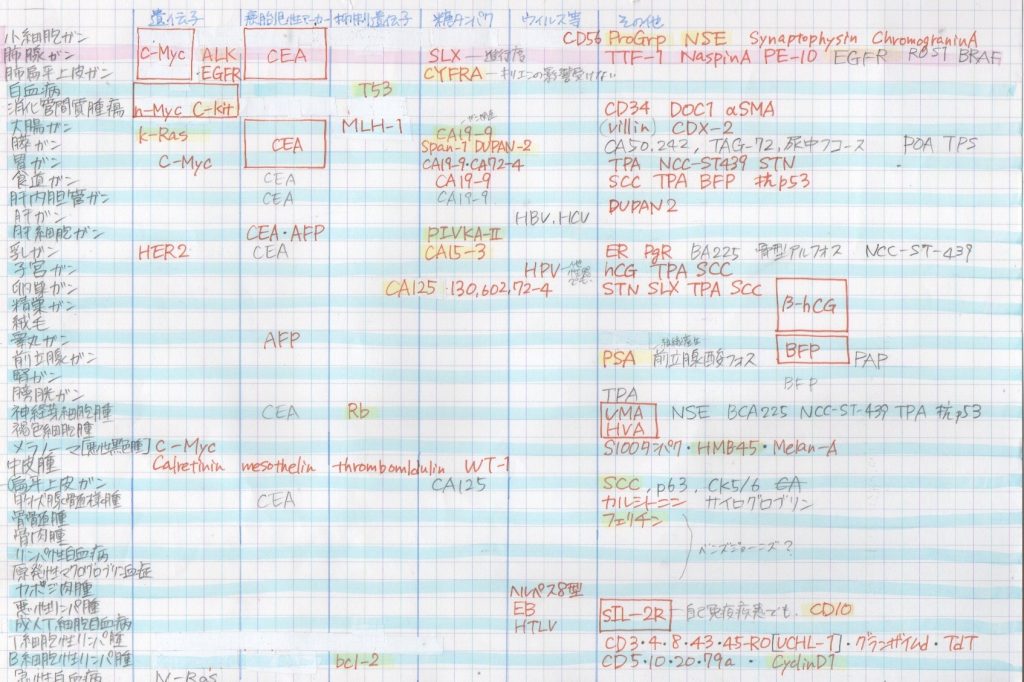 遺伝子 癌胎児性マーカー 抑制遺伝子 糖タンパク ウィルス等 その他
小細胞ガン CD56 ProGrp NSE Synaptophysin ChromograninA
肺腺ガン C-Myc ALK CEA SLX TTF-1 NaspinA PE-10 EGFR ROST BRAF
肺扁平上皮ガン ・EGFR CYFRA
白血病 T53
消化管間質腫瘍 n-Myc C-kit CD34 DOC1 αSMA
大腸ガン k-Ras MLH-1 CA19-9 (villin) CDX-2
膵ガン CEA Span-1 DUPAN-2 CA50.242, TAG-72, 尿中フコース POA TPS
胃ガン C-Myc CA19-9・CA72-4 TPA NCC-ST439 STN
食道ガン CEA CA19-9 SCC TPA BFP 抗p53
肝内胆管ガン CEA CA19-9
肝ガン HBV, HCV DUPAN2
肝細胞ガン CEA・AFP PIVKA-II
乳ガン HER2 CEA CA15-3 ER PgR BA225 骨型アルフォス NCC-ST-439
子宮ガン HPV hCG TPA SCC
卵巣ガン CA125・130,602,72-4 STN SLX TPA SCC
精巣ガン β-hCG
絨毛
睾丸ガン AFP
前立腺ガン PSA 前立腺酸フォス BFP PAP
腎ガン BFP
膀胱ガン TPA
神経芽細胞腫 CEA Rb VMA NSE BCA225 NCC-ST-439 TPA 抗p53
褐色細胞腫 HVA
メラノーマ[悪性黒色腫] C-Myc S100タンパク・HMB45・Melan-A
中皮腫 Calretinin mesothelin thrombomldulin WT-1
扁平上皮ガン CA125 SCC, p63, CK5/6 CA
甲状腺髄様腫 CEA カルシトニン サイログロブリン
骨髄腫 フェリチン
骨肉腫
リンパ性白血病 ベンズジョーンズ?
原発性マクログロブリン血症
カポジ肉腫 ヘルペス8型
悪性リンパ腫 EB SIL-2R 自己免疫疾患でも CD10
成人T細胞白血病 HTLV
T細胞性リンパ腫 CD3・4・8・43・45-RO[UCHL-1]・グランザイム・TdT
B細胞性リンパ腫 bcl-2 CD5・10・20・79a・CyclinD1
急性白血病 N-Ras